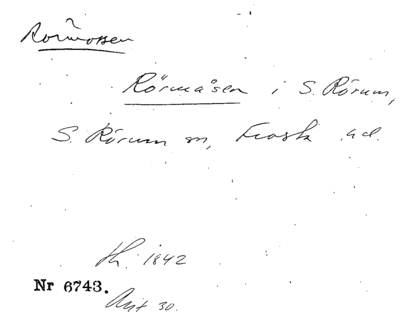 Rörmossen
Rörmåsen i S. Rörum,
S. Rörum sn, Frosta hd.
th. 1842
Nr 6743. Avt 30.